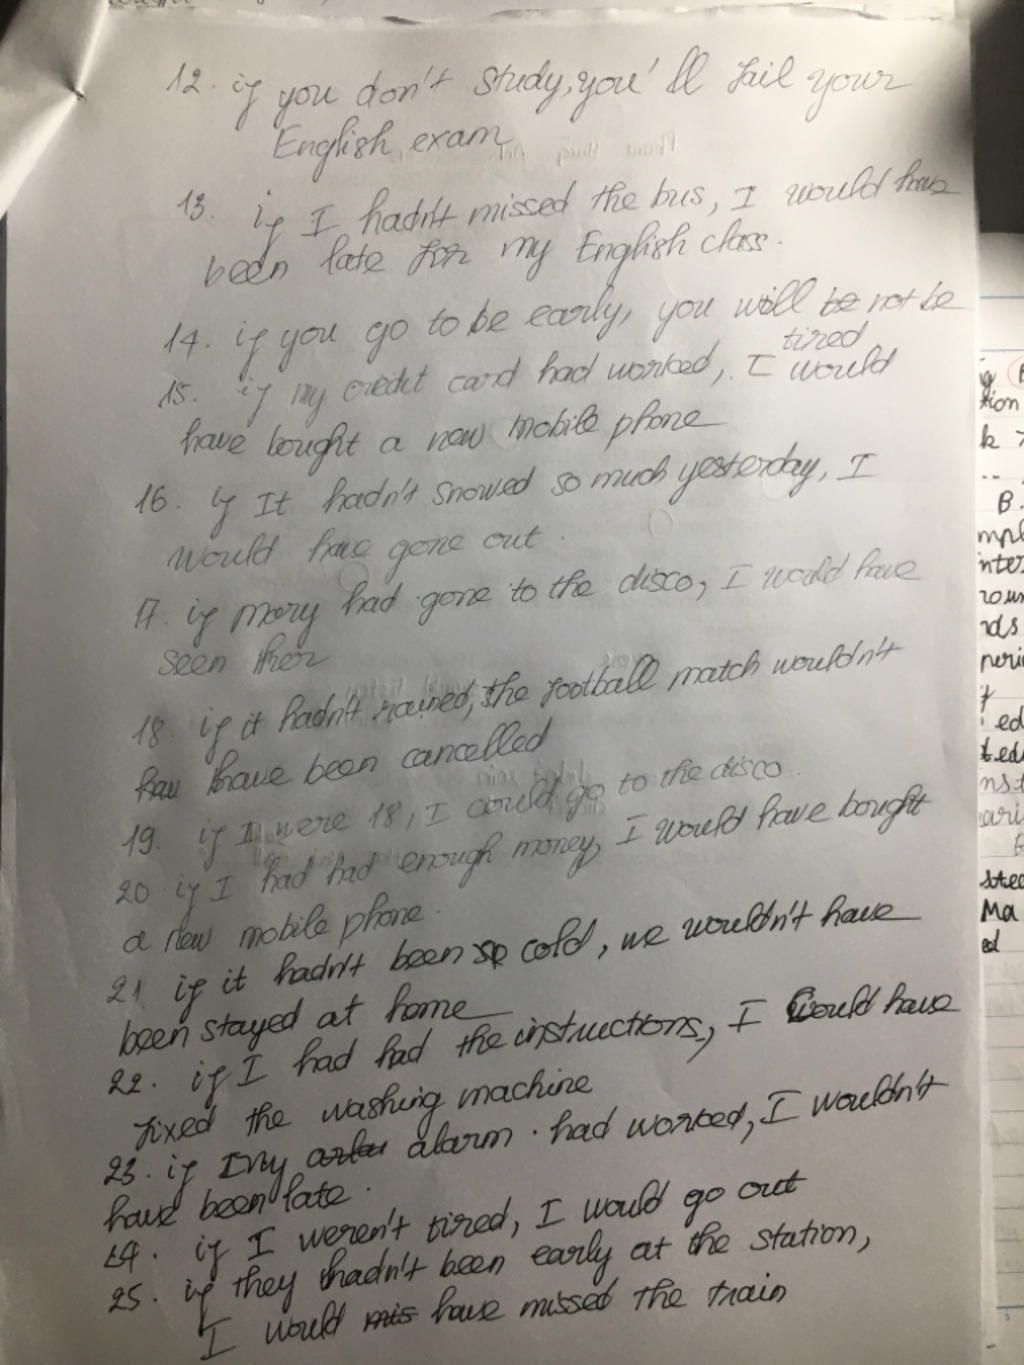 12. if you don't study, you'll fail your
English exam
13. if I hadn't missed the bus, I would have
been late for my English class.
14. if you go to be early, you will be not be
tired
15. if my credit card had worked, I would
have bought a new mobile phone
16. if It hadn't snowed so much yesterday, I
would have gone out.
17. if mary had gone to the disco, I would have
seen her
18. if it hadn't rained, the football match wouldn't
hav have been cancelled
19. if I were 18, I could go to the disco.
20 if I had had enough money, I would have bought
a new mobile phone.
21 if it hadn't been so cold, we wouldn't have
been stayed at home
22. if I had had the instructions, I could have
fixed the washing machine
23. if my alarm. had worked, I wouldn't
have been late.
24. if I weren't tired, I would go out
25. if they hadn't been early at the station,
I would mis have missed the train
ig
tion
k
B.
mpl
nter
rour
nds
peri
ed
ted
nst
ari
sted
Ma
ed